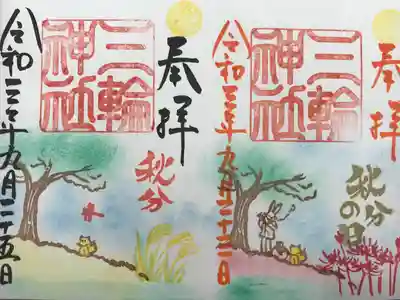 奉拝
秋分の日
三輪
神社
令和三年九月二十三日
奉拝
秋分
三輪
神社
令和三年九月二十五日